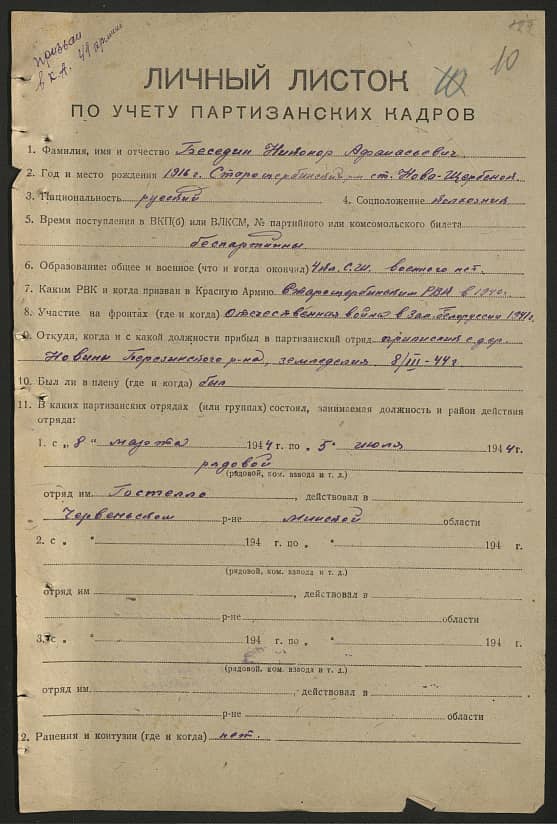 призван
в К.А. 49 армии
10
ЛИЧНЫЙ ЛИСТОК
ПО УЧЕТУ ПАРТИЗАНСКИХ КАДРОВ
1. Фамилия, имя и отчество Беседин Никонор Афанасьевич
2. Год и место рождения 1916 г. ст. Ново-Щербинов.
3. Национальность русский 4. Соцположение колхозник
5. Время поступления в ВКП(б) или ВЛКСМ, № партийного или комсомольского билета
беспартийны
6. Образование: общее и военное (что и когда окончил) военного нет.
7. Каким РВК и когда призван в Красную Армию в 1940г.
8. Участие на фронтах (где и когда) Отечественная война в Зап. Белоруссии 1941г.
9. Откуда, когда и с какой должности прибыл в партизанский отряд с дер.
Новины Березинского р-на, земледелия 8/III-44г.
10. Был ли в плену (где и когда) был
11. В каких партизанских отрядах (или группах) состоял, занимаемая должность и район действия
отряда:
1. с „ 8 " марта 1944 г. по „ 5" июля 1944 г.
рядовой
(рядовой, ком. взвода и т. д.)
отряд им. Гостелло, действовал в
Червеньском р-не Минской области
2. с „ " 194 г. по „ " 194 г.
(рядовой, ком. взвода и т. д.)
отряд им , действовал в
р-не области
3. с „ " 194 г. по „ " 194 г.
(рядовой, ком. взвода и т. д.)
отряд им. , действовал в
р-не области
2. Ранения и контузии (где и когда) нет.